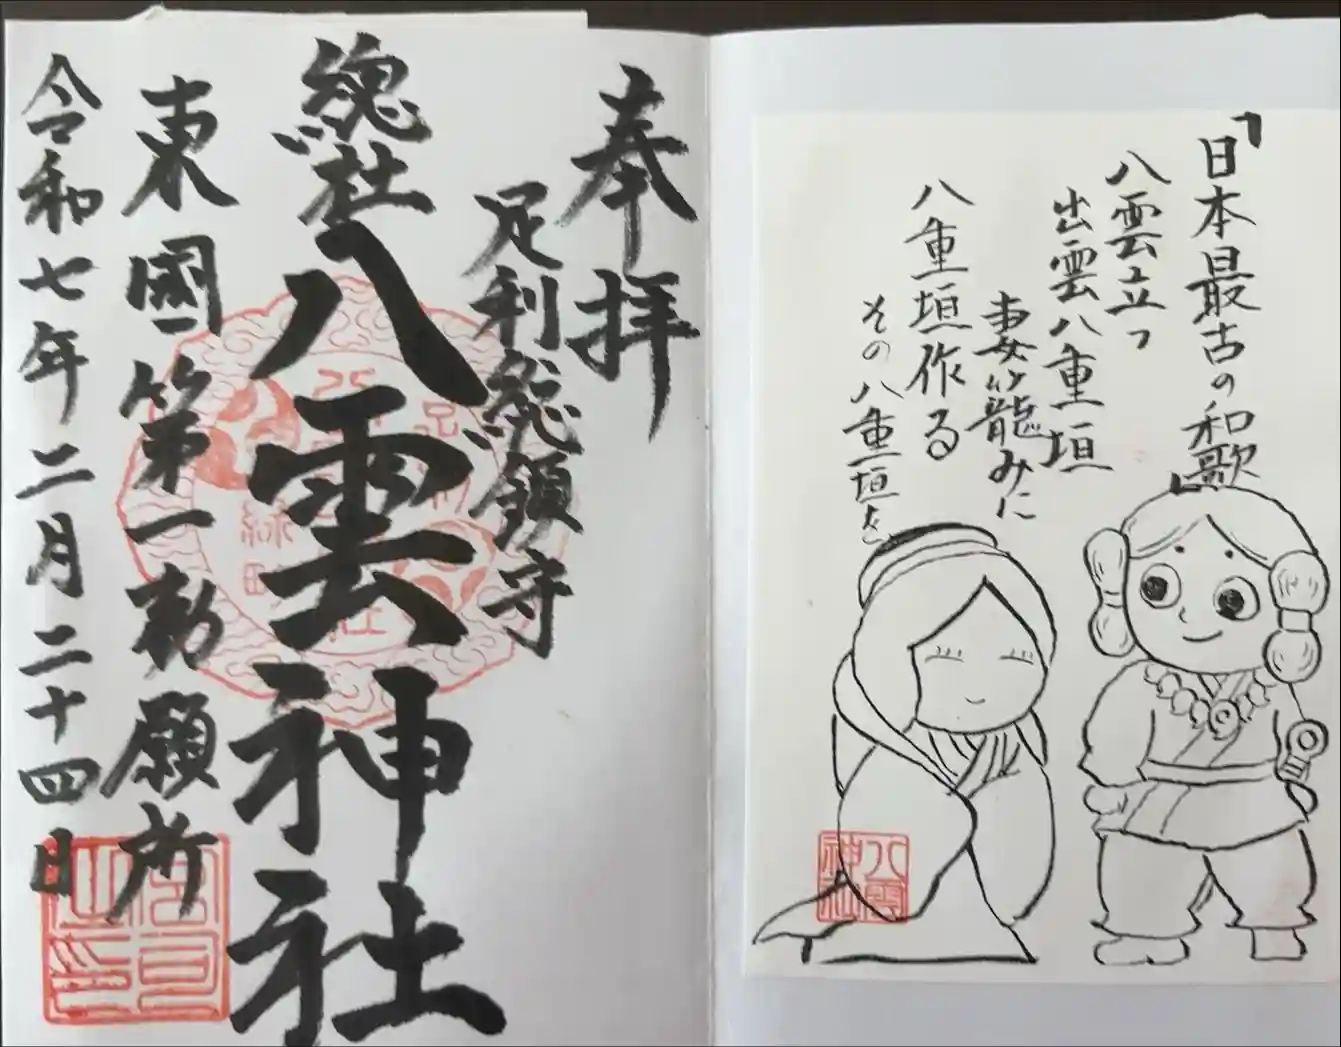 「日本最古の和歌」
八雲立つ
出雲八重垣
妻籠みに
八重垣作る
その八重垣を
八雲神社
奉拝
足利総鎮守
總社八雲神社
東國第一勅願所
令和七年二月二十四日